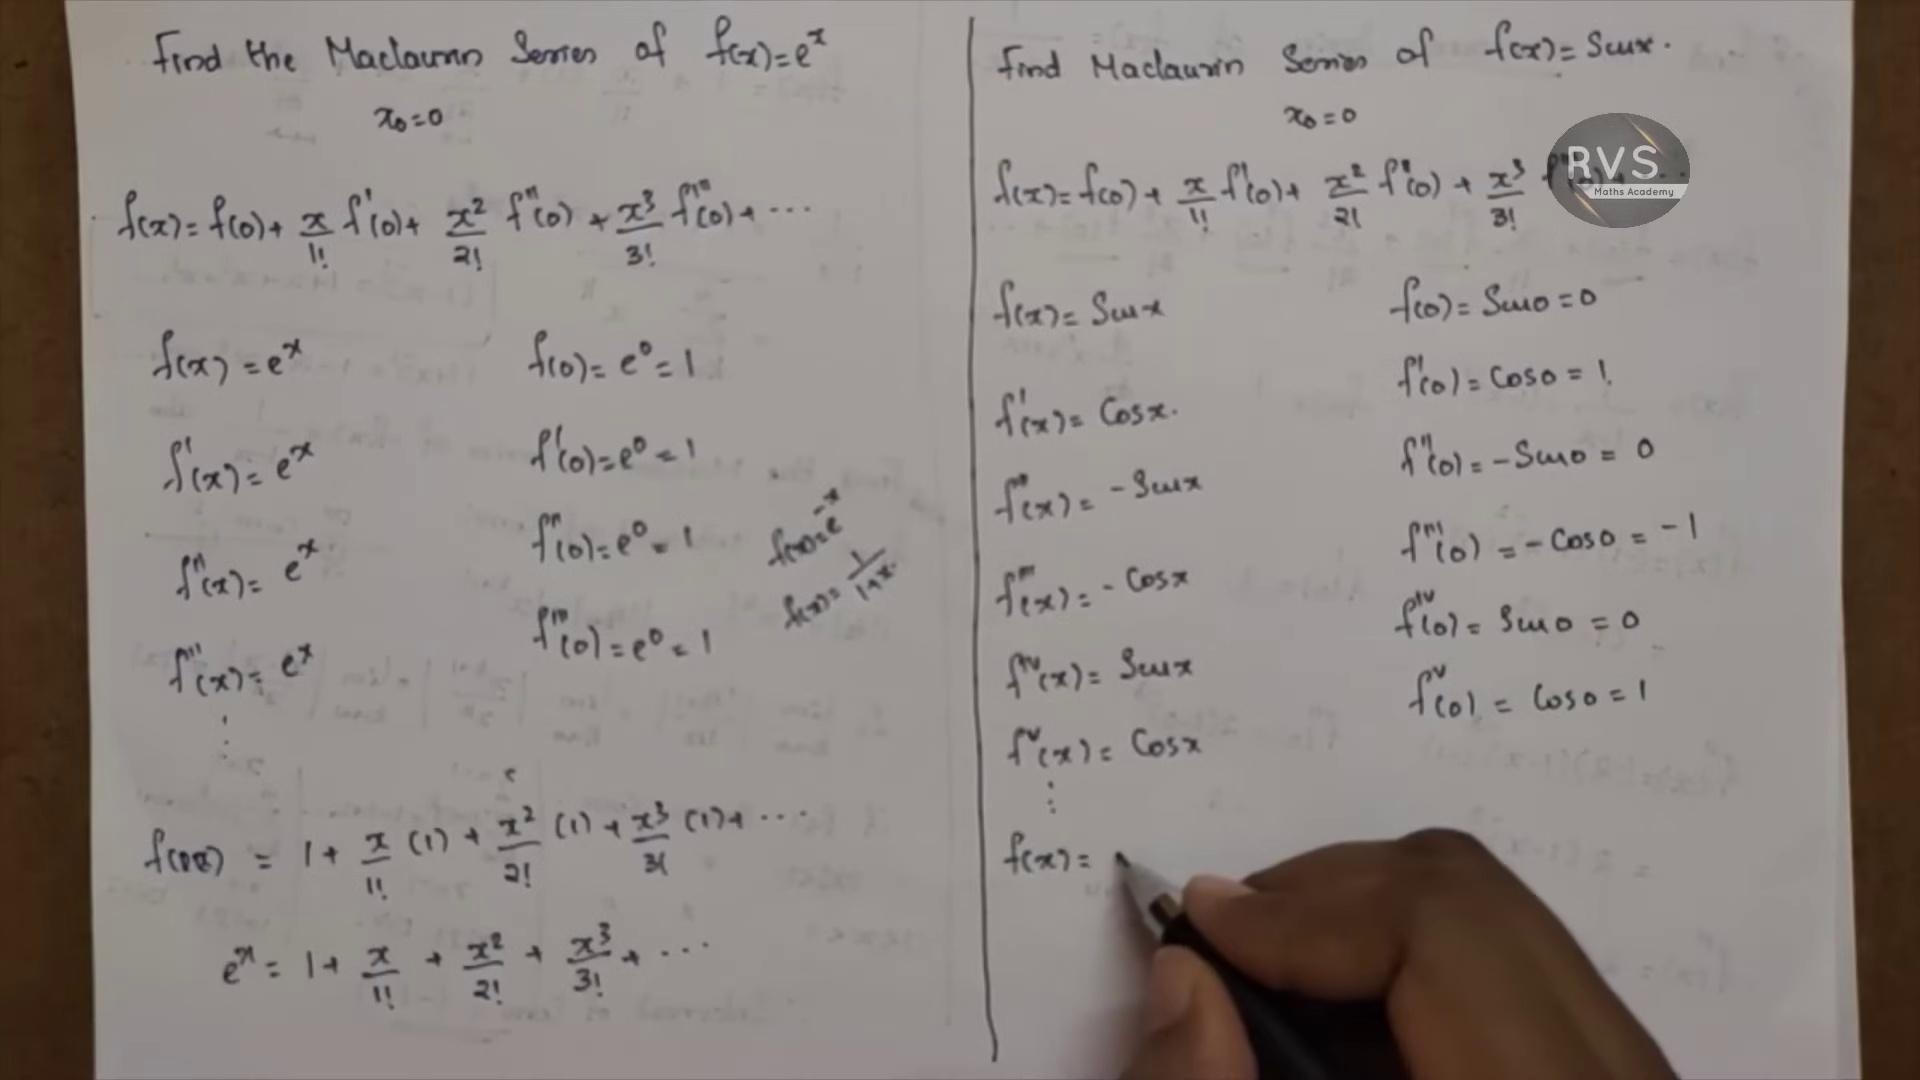 Find the Maclaurin Series of f(x)=e^x
x₀=0
f(x)=f(0)+ x/1! f'(0)+ x²/2! f''(0) + x³/3! f'''(0)+ ...
f(x) = e^x f(0)= e⁰= 1
f'(x)= e^x f'(0)=e⁰=1
f''(x)= e^x f''(0)=e⁰=1
f'''(x)= e^x f'''(0)=e⁰=1
⋮
f(x)=e^-x
f(x)= 1/1+x.
= 1+ x/1! (1) + x²/2! (1) + x³/3! (1)+ ...
e^x= 1+ x/1! + x²/2! + x³/3! + ...
Find Maclaurin Series of f(x)= Sinx.
x₀=0
f(x)=f(0)+ x/1! f'(0)+ x²/2! f''(0) + x³/3!
RVS
Maths Academy
f(x)= Sinx f(0)= Sin0=0
f'(x)= Cosx. f'(0)= Cos0=1.
f''(x)= -Sinx f''(0)= -Sin0= 0
f'''(x)= -Cosx f'''(0) = -Cos0= -1
f^iv(x)= Sinx f^iv(0)= Sin0=0
f^v(x)= Cosx f^v(0) = Cos0=1
⋮
f(x)=